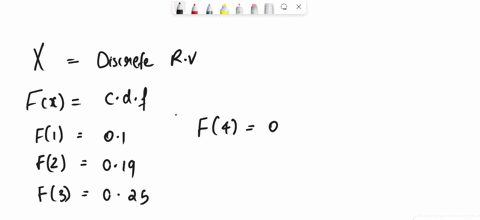 X = Discrete R.V
F(x) = c.d.f
F(1) = 0.1
F(2) = 0.19
F(3) = 0.25
F(4) = 0